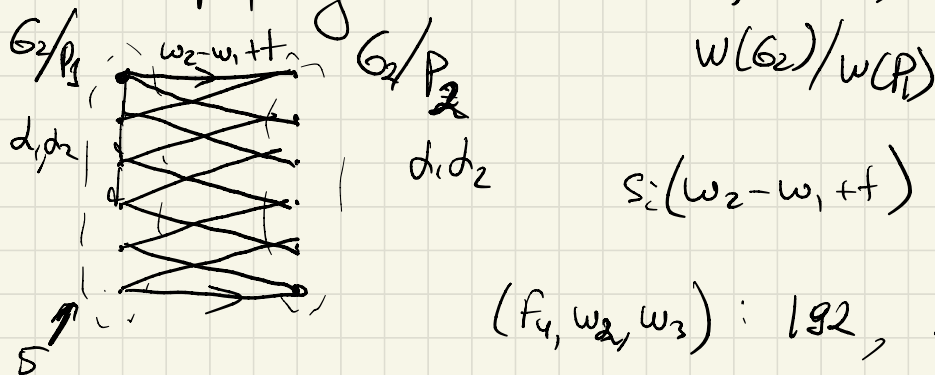 G₂/P₁
ω₂-ω₁+t
G₂/P₂
W(G₂)/W(P₁)
α₁α₂
α₁α₂
sᵢ(ω₂-ω₁+t)
(F₄, ω₂, ω₃) : 192,
5